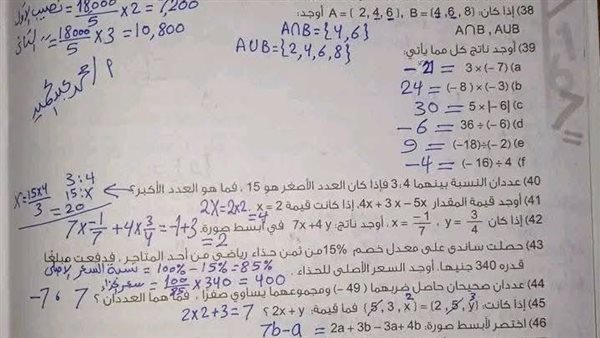 18000/5 × 2 = 7,200 = نصيب الأول
18000/5 × 3 = 10,800
38) إذا كان: A = { 2, 4, 6 }, B = {4, 6, 8} أوجد:
A∩B , A∪B
A∩B = {4, 6}
A∪B = {2, 4, 6, 8}
39) أوجد ناتج كل مما يأتي:
- 21 = 3 × (- 7) (a
24 = (- 8) × (- 3) (b
30 = 5 × |- 6| (c
- 6 = 36 ÷ (- 6) (d
9 = (-18) ÷ (- 2) (e
- 4 = (- 16) ÷ 4 (f
40) عددان النسبة بينهما 3:4 فإذا كان العدد الأصغر هو 15 ، فما هو العدد الأكبر؟
3 : 4
15 : x
x = 15×4/3 = 20
41) أوجد قيمة المقدار 4x + 3x – 5x، إذا كانت قيمة x = 2
2X = 2×2 = 4
42) إذا كان x = -1/7 , y = 3/4 ، أوجد ناتج: 7x + 4y في أبسط صورة.
7 × -1/7 + 4 × 3/4 = -1 + 3 = 2
43) حصلت ساندي على معدل خصم 15% من ثمن حذاء رياضي من أحد المتاجر، فدفعت مبلغا
قدره 340 جنيها. أوجد السعر الأصلي للحذاء.
85% = 100% - 15% = نسبة السعر الأصلي
400 = 100/85 × 340 =
44) عددان صحيحان حاصل ضربهما (49 -) ومجموعهما يساوي صفرا ، فما هما العددان ؟
-7 ، 7
45) إذا كانت: {5, 3, x} = {2, 5, y} فما قيمة: 2x + y ؟
2 3
2×2+3 = 7
46) اختصر لأبسط صورة: 2a + 3b – 3a + 4b
7b - a =